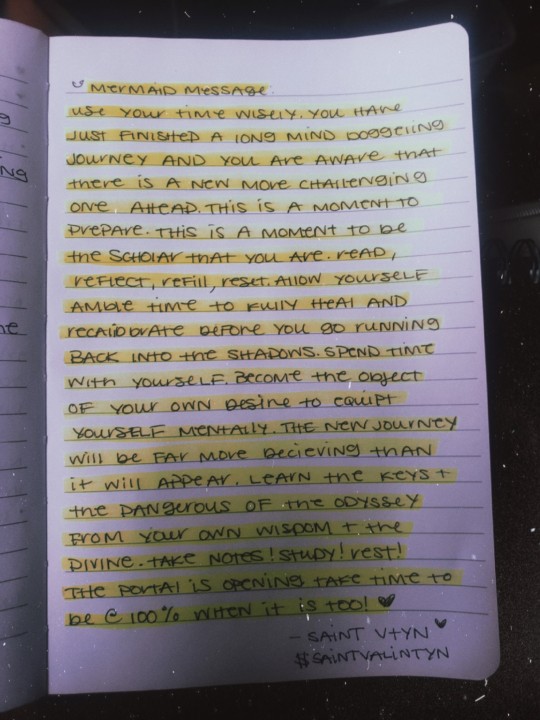 MERMAID MESSAGE
USE YOUR TIME WISELY. YOU HAVE
JUST FINISHED A LONG MIND BOGGELING
JOURNEY AND YOU ARE AWARE THAT
THERE IS A NEW MORE CHALLENGING
ONE AHEAD. THIS IS A MOMENT TO
PREPARE. THIS IS A MOMENT TO BE
THE SCHOLAR THAT YOU ARE. READ,
REFLECT, REFILL, RESET. ALLOW YOURSELF
AMBLE TIME TO FULLY HEAL AND
RECALIBORATE BEFORE YOU GO RUNNING
BACK INTO THE SHADOWS. SPEND TIME
WITH YOURSELF. BECOME THE OBJECT
OF YOUR OWN DESIRE TO EQUIPT
YOURSELF MENTALLY. THE NEW JOURNEY
WILL BE FAR MORE DECIEVING THAN
IT WILL APPEAR. LEARN THE KEYS +
THE DANGEROUS OF THE ODYSSEY
FROM YOUR OWN WISDOM + THE
DIVINE. TAKE NOTES! STUDY! REST!
THE PORTAL IS OPENING TAKE TIME TO
BE @ 100% WHEN IT IS TOO! ♥
- SAINT VTYN ♥
$SAINTVALINTYN